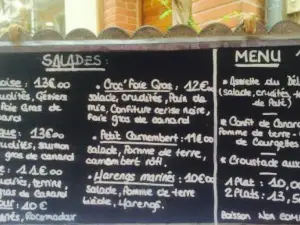 SALADES:
13€00
crudités, Gésiers
Foie Gras de
canard
13€00
crudités, saumon
gras de canard
11€00
crudités, terrine
gras de Canard
10€
Rocamadour
• Croc' Foie Gras: 12€00
salade, crudités, Pain de
mie, Confiture cerise noire,
Foie gras de canard
• Petit Camembert: 11€00
salade, Pomme de terre,
camembert rôti.
• Harengs marinés: 10€00
salade, Pomme de terre
tiède, Harengs.
MENU
• Assiette du
(salade, crudités,
• Confit de Canard
Pomme de terre
de Courgettes
• Croustade aux
1 Plat: 10,
2 Plats: 13,5
Boisson Non